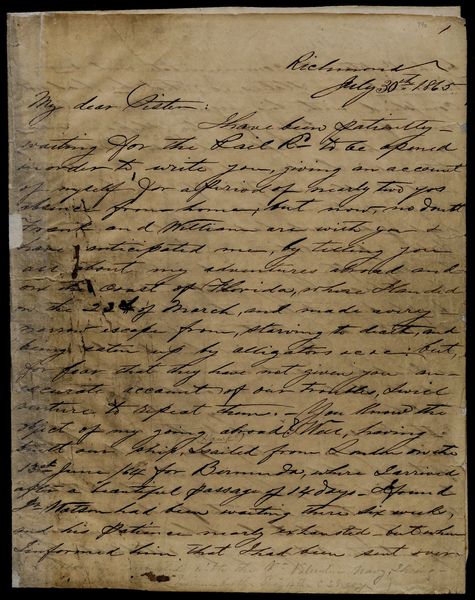 1
Richmond
July 30th 1865
My dear Sister:
I have been patiently
waiting for the Rail Rd to be opened
in order to write you, giving an account
of myself, for a period of nearly two yrs
absence from home, but now, no doubt
Frank and William are with you &
have anticipated me, by telling you
all about my adventures abroad and
on the coast of Florida, where I landed
on the 22d of March, and made a very
narrow escape from, starving to death, and
being eaten up by alligators &c &c; but,
for fear that they have not given you an
accurate account of our troubles, I will
venture to repeat them. - You know the
object of my going abroad, Well, having
our ship, I sailed from London on the
June for Bermuda, where I arrived
after a beautiful passage of 14 days - I found
Mr Watson had been waiting there six weeks,
and his patience nearly exhausted - but when
I informed him that I had been sent over